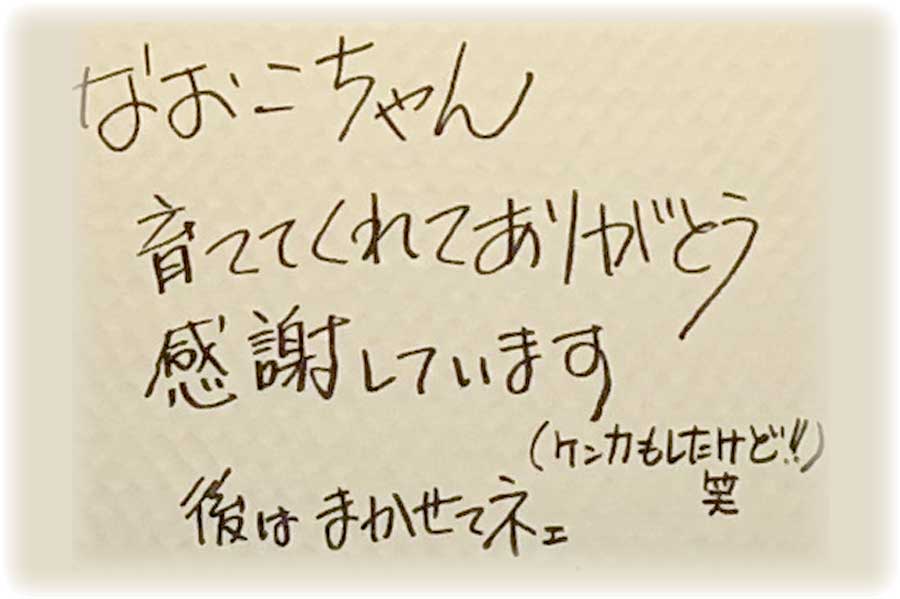 なおこちゃん
育ててくれてありがとう
感謝しています
(ケンカもしたけど!!)
笑
後はまかせてネェ